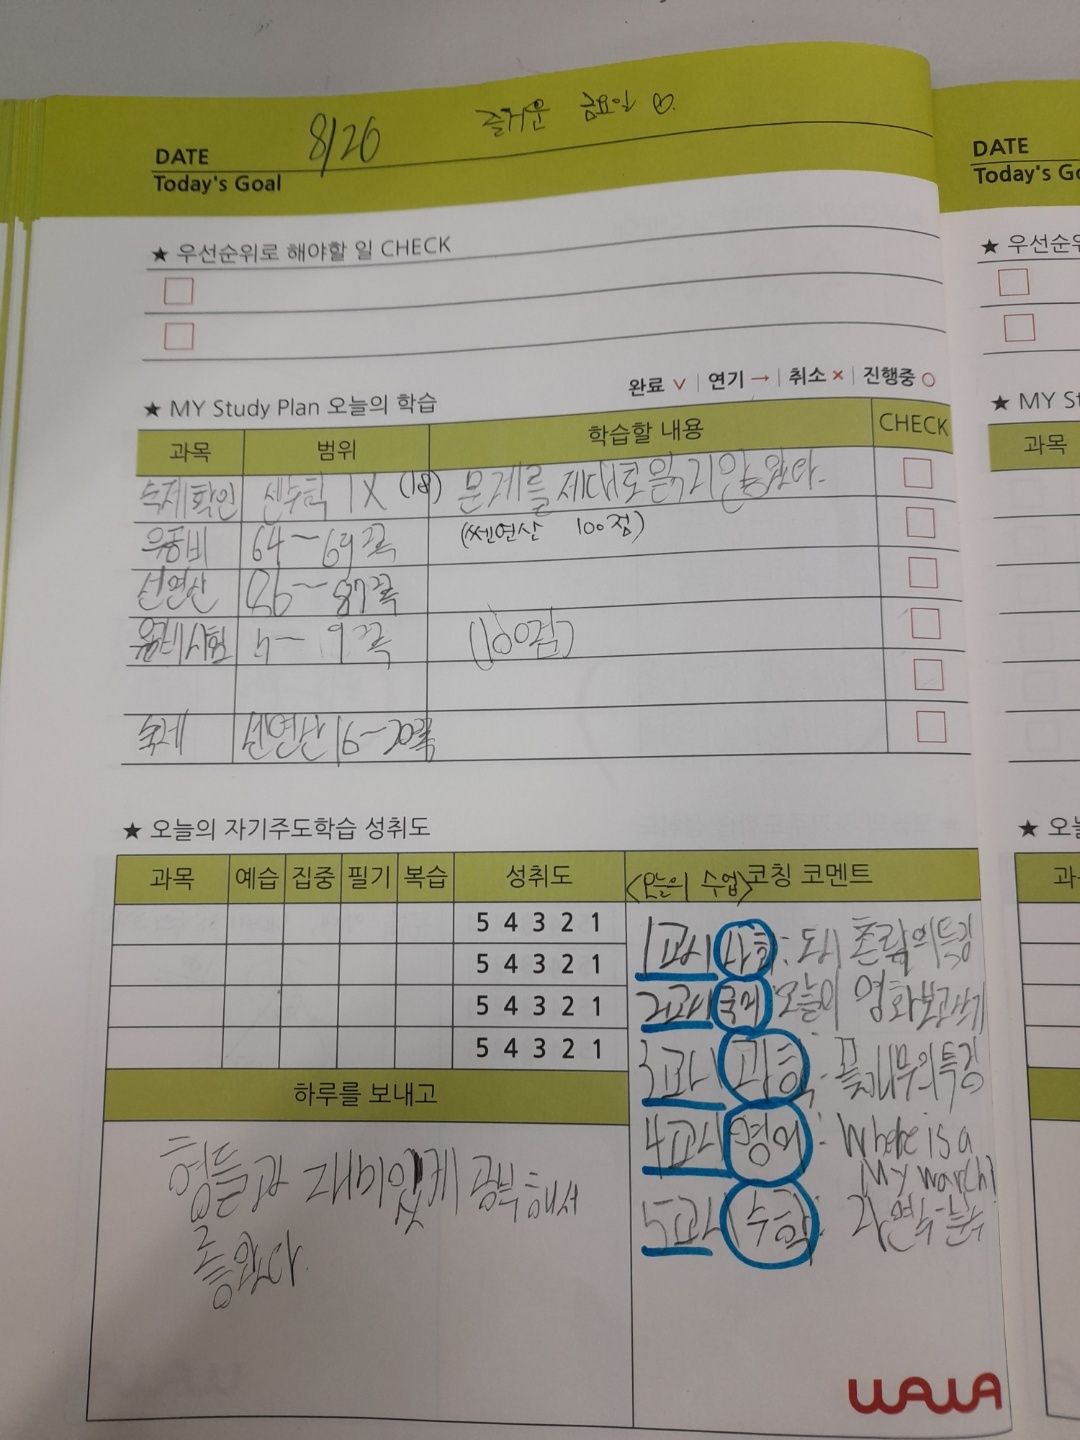 8/26 즐거운 금요일 ♡
DATE
Today's Goal
★ 우선순위로 해야할 일 CHECK
완료 ∨ | 연기 → | 취소 × | 진행중 ○
★ MY Study Plan 오늘의 학습
과목 범위 학습할 내용 CHECK
숙제확인 1X (18) 문제를 제대로 읽지않았다.
64~65쪽 (쎈연산 100점)
쎈연산 86~87쪽
4~ 쪽 (100점)
숙제 쎈연산 19~20쪽
★ 오늘의 자기주도학습 성취도
과목 예습 집중 필기 복습 성취도 <오늘의 수업> 코칭 코멘트
5 4 3 2 1
5 4 3 2 1
5 4 3 2 1
5 4 3 2 1
1교시 사회: 도시 촌락의 특징
2교시 국어: 영화보고쓰기
3교시 과학: 특징
4교시 영어: Where is a
My
5교시 수학: 자연수-분수
하루를 보내고
형들과 재미있게 공부해서
좋았다
WAWA
DATE
Today's Go
★ 우선순위
★ MY St
과목
★ 오늘